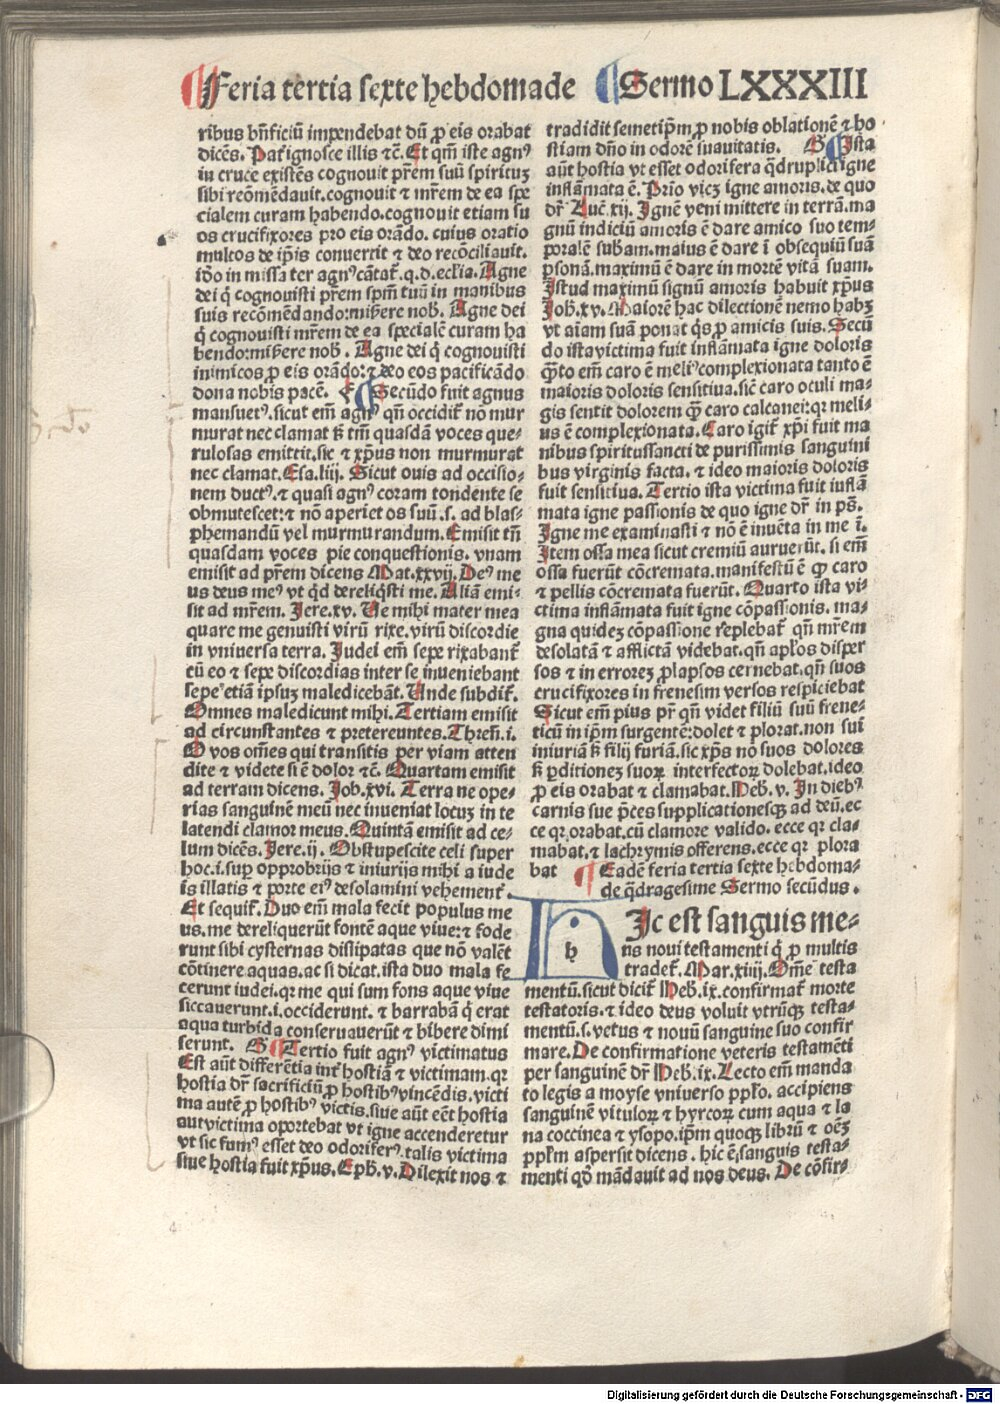 Feria tertia sexte hebdomade Sermo LXXXIII
ribus bñficiũ impendebat dũ ꝓ eis orabat
dicẽs. Pat̃ ignosce illis ⁊c̃. Et qm̃ iste agnꝰ
in cruce existẽs cognouit pr̃em suũ spirituꝫ
sibi reõmẽdauit. cognouit ⁊ mr̃em de ea spe
cialem curam habendo. cognouit etiam su
os crucifixores pro eis orãdo. cuius oratio
multos de ip̃is conuertit ⁊ deo recõciliauit.
iõo in missa ter agnꝰ cãtat̃. q. d. eccl̃ia. Agne
dei q̃ cognouisti pr̃em sp̃m tuũ in manibus
suis recõmẽdando: miẞere nob̃. Agne dei
q̃ cognouisti mr̃em de ea specialẽ curam ha
bendo: miẞere nob̃. Agne dei q̃ cognouisti
inimicos ꝓ eis orãdo: ⁊ deo eos pacificãdo
dona nobis pacẽ. F Secũdo fuit agnus
mansuetꝰ. sicut em̃ agnꝰ qñ occidit̃ nõ mur
murat nec clamat ẞ tm̃ quasdã voces que-
rulosas emittit. sic ⁊ xp̃us non murmurat
nec clamat. Esa. liij. Sicut ouis ad occisio-
nem ductꝰ. ⁊ quasi agnꝰ coram tondente se
obmutescet: ⁊ nõ aperiet os suũ. s. ad blas-
phemandũ vel murmurandum. Emisit tñ
quasdam voces pie conquestionis. vnam
emisit ad pr̃em dicens Mat. xxvij. Deꝰ me
us deus meꝰ vt qd̃ dereliq̃sti me. Aliã emi-
sit ad mr̃em. Jere. xv. Ue mihi mater mea
quare me genuisti virũ rixe. virũ discordie
in vniuersa terra. Judei em̃ sepe rixabant̃
cũ eo ⁊ sepe discordias inter se inueniebant
sepe etiã ipsuꝫ maledicebãt. Unde subdit̃.
Omnes maledicunt mihi. Tertiam emisit
ad circunstantes ⁊ pretereuntes. Thren̄. i.
O vos om̃es qui transitis per viam atten
dite ⁊ videte si ẽ dolor ⁊c̃. Quartam emisit
ad terram dicens. Job. xvi. Terra ne ope-
rias sanguinẽ meũ nec inueniat locuꝫ in te
latendi clamor meus. Quintã emisit ad ce-
lum dicẽs. Jere. ij. Obstupescite celi super
hoc. i. suꝑ opprobrijs ⁊ iniurijs mihi a iude
is illatis ⁊ porte eiꝰ desolamini vehement̃.
Et sequit̃. Duo em̃ mala fecit populus me
us. me dereliquerũt fontẽ aque viue: ⁊ fode
runt sibi cysternas dissipatas que nõ valẽt
cõtinere aquas. ac si dicat. ista duo mala fe
cerunt iudei. qꝛ me qui sum fons aque viue
siccauerunt. i. occiderunt. ⁊ barrabã q̃ erat
aqua turbida conseruauerũt ⁊ bibere dimi
serunt. G Tertio fuit agnꝰ victimatus
Est aũt differẽtia int̃ hostiã ⁊ victimam. qꝛ
hostia dr̃ sacrificiũ ꝓ hostibꝰ vincẽdis. victi
ma autẽ ꝓ hostibꝰ victis. siue aũt eẽt hostia
aut victima oportebat vt igne accenderetur
vt sic fumꝰ esset deo odoriferꝰ. talis victima
siue hostia fuit xp̃us. Eph̃. v. Dilexit nos ⁊
tradidit semetip̃m ꝓ nobis oblationẽ ⁊ ho
stiam dño in odorẽ suauitatis. H Ista
aũt hostia vt esset odorifera q̃druplici igne
inflãmata ẽ. Prĩo vicꝫ igne amoris. de quo
dr̃ Luc̃. xij. Ignẽ veni mittere in terrã. ma
gnũ indiciũ amoris ẽ dare amico suo tem-
poralẽ subam̃. maius ẽ dare ĩ obsequiũ suã
ꝑsonã. maximũ ẽ dare in mortẽ vitã suam.
Istud maximũ signũ amoris habuit xp̃us
Joh̃. xv. Maiorẽ hac dilectionẽ nemo habꝫ
vt aĩam suã ponat q̃s ꝓ amicis suis. Secũ
do ista victima fuit inflãmata igne doloris
q̃to em̃ caro ẽ meliꝰ complexionata tanto ẽ
maioris doloris sensitiua. sic̃ caro oculi ma-
gis sentit dolorem q̃ caro calcanei: qꝛ meli-
us ẽ complexionata. Caro igit̃ xp̃i fuit ma
nibus spiritussancti de purissimis sanguini
bus virginis facta. ⁊ ideo maioris doloris
fuit sensitiua. Tertio ista victima fuit inflã
mata igne passionis de quo igne dr̃ in ps̃.
Igne me examinasti ⁊ nõ ẽ inuẽta in me ĩ.
Item ossa mea sicut cremiũ aruerũt. si em̃
ossa fuerũt cõcremata. manifestũ ẽ ꝙ caro
⁊ pellis cõcremata fuerũt. Quarto ista vi-
ctima inflãmata fuit igne cõpassionis. ma-
gna quideꝫ cõpassione replebat̃ qñ mr̃em
desolatã ⁊ afflictã videbat. qñ apl̃os disper
sos ⁊ in erroreꝫ ꝓlapsos cernebat. qñ suos
crucifixores in frenesim versos respiciebat
Sicut em̃ pius pr̃ qñ videt filiũ suũ frene-
ticũ in ip̃m surgentẽ: dolet ⁊ plorat. non sui
iniuriã ẞ filij furiã. sic xp̃s nõ suos dolores
ẞ ꝑditioneꝫ suoꝝ interfectoꝝ dolebat. ideo
ꝓ eis orabat ⁊ clamabat. Heb̃. v. In diebꝰ
carnis sue p̃ces supplicationesqꝫ ad deũ. ec
ce qꝛ orabat. cũ clamore valido. ecce qꝛ cla-
mabat. ⁊ lachrymis offerens. ecce qꝛ plora
bat Eadẽ feria tertia sexte hebdoma-
de q̃dragesime Sermo secũdus.
h
Ic est sanguis me-
us noui testamenti q̃ ꝓ multis
tradet̃. Mar. xiiij. Om̃e testa
mentũ. sicut dicit̃ Heb̃. ix. confirmat̃ morte
testatoris. ⁊ ideo deus voluit vtrũqꝫ testa-
mentũ. s. vetus ⁊ nouũ sanguine suo confir
mare. De confirmatione veteris testamẽti
per sanguinẽ dr̃ Heb̃. ix. Lecto em̃ manda
to legis a moyse vniuerso pp̃lo. accipiens
sanguinẽ vituloꝝ ⁊ hyrcoꝝ cum aqua ⁊ la
na coccinea ⁊ ysopo. ip̃m quoqꝫ librũ ⁊ oẽꝫ
ppl̃m aspersit dicens. hic ẽ sanguis testa-
menti qd̃ mãdauit ad nos deus. De cõfir-
Digitalisierung gefördert durch die Deutsche Forschungsgemeinschaft - DFG